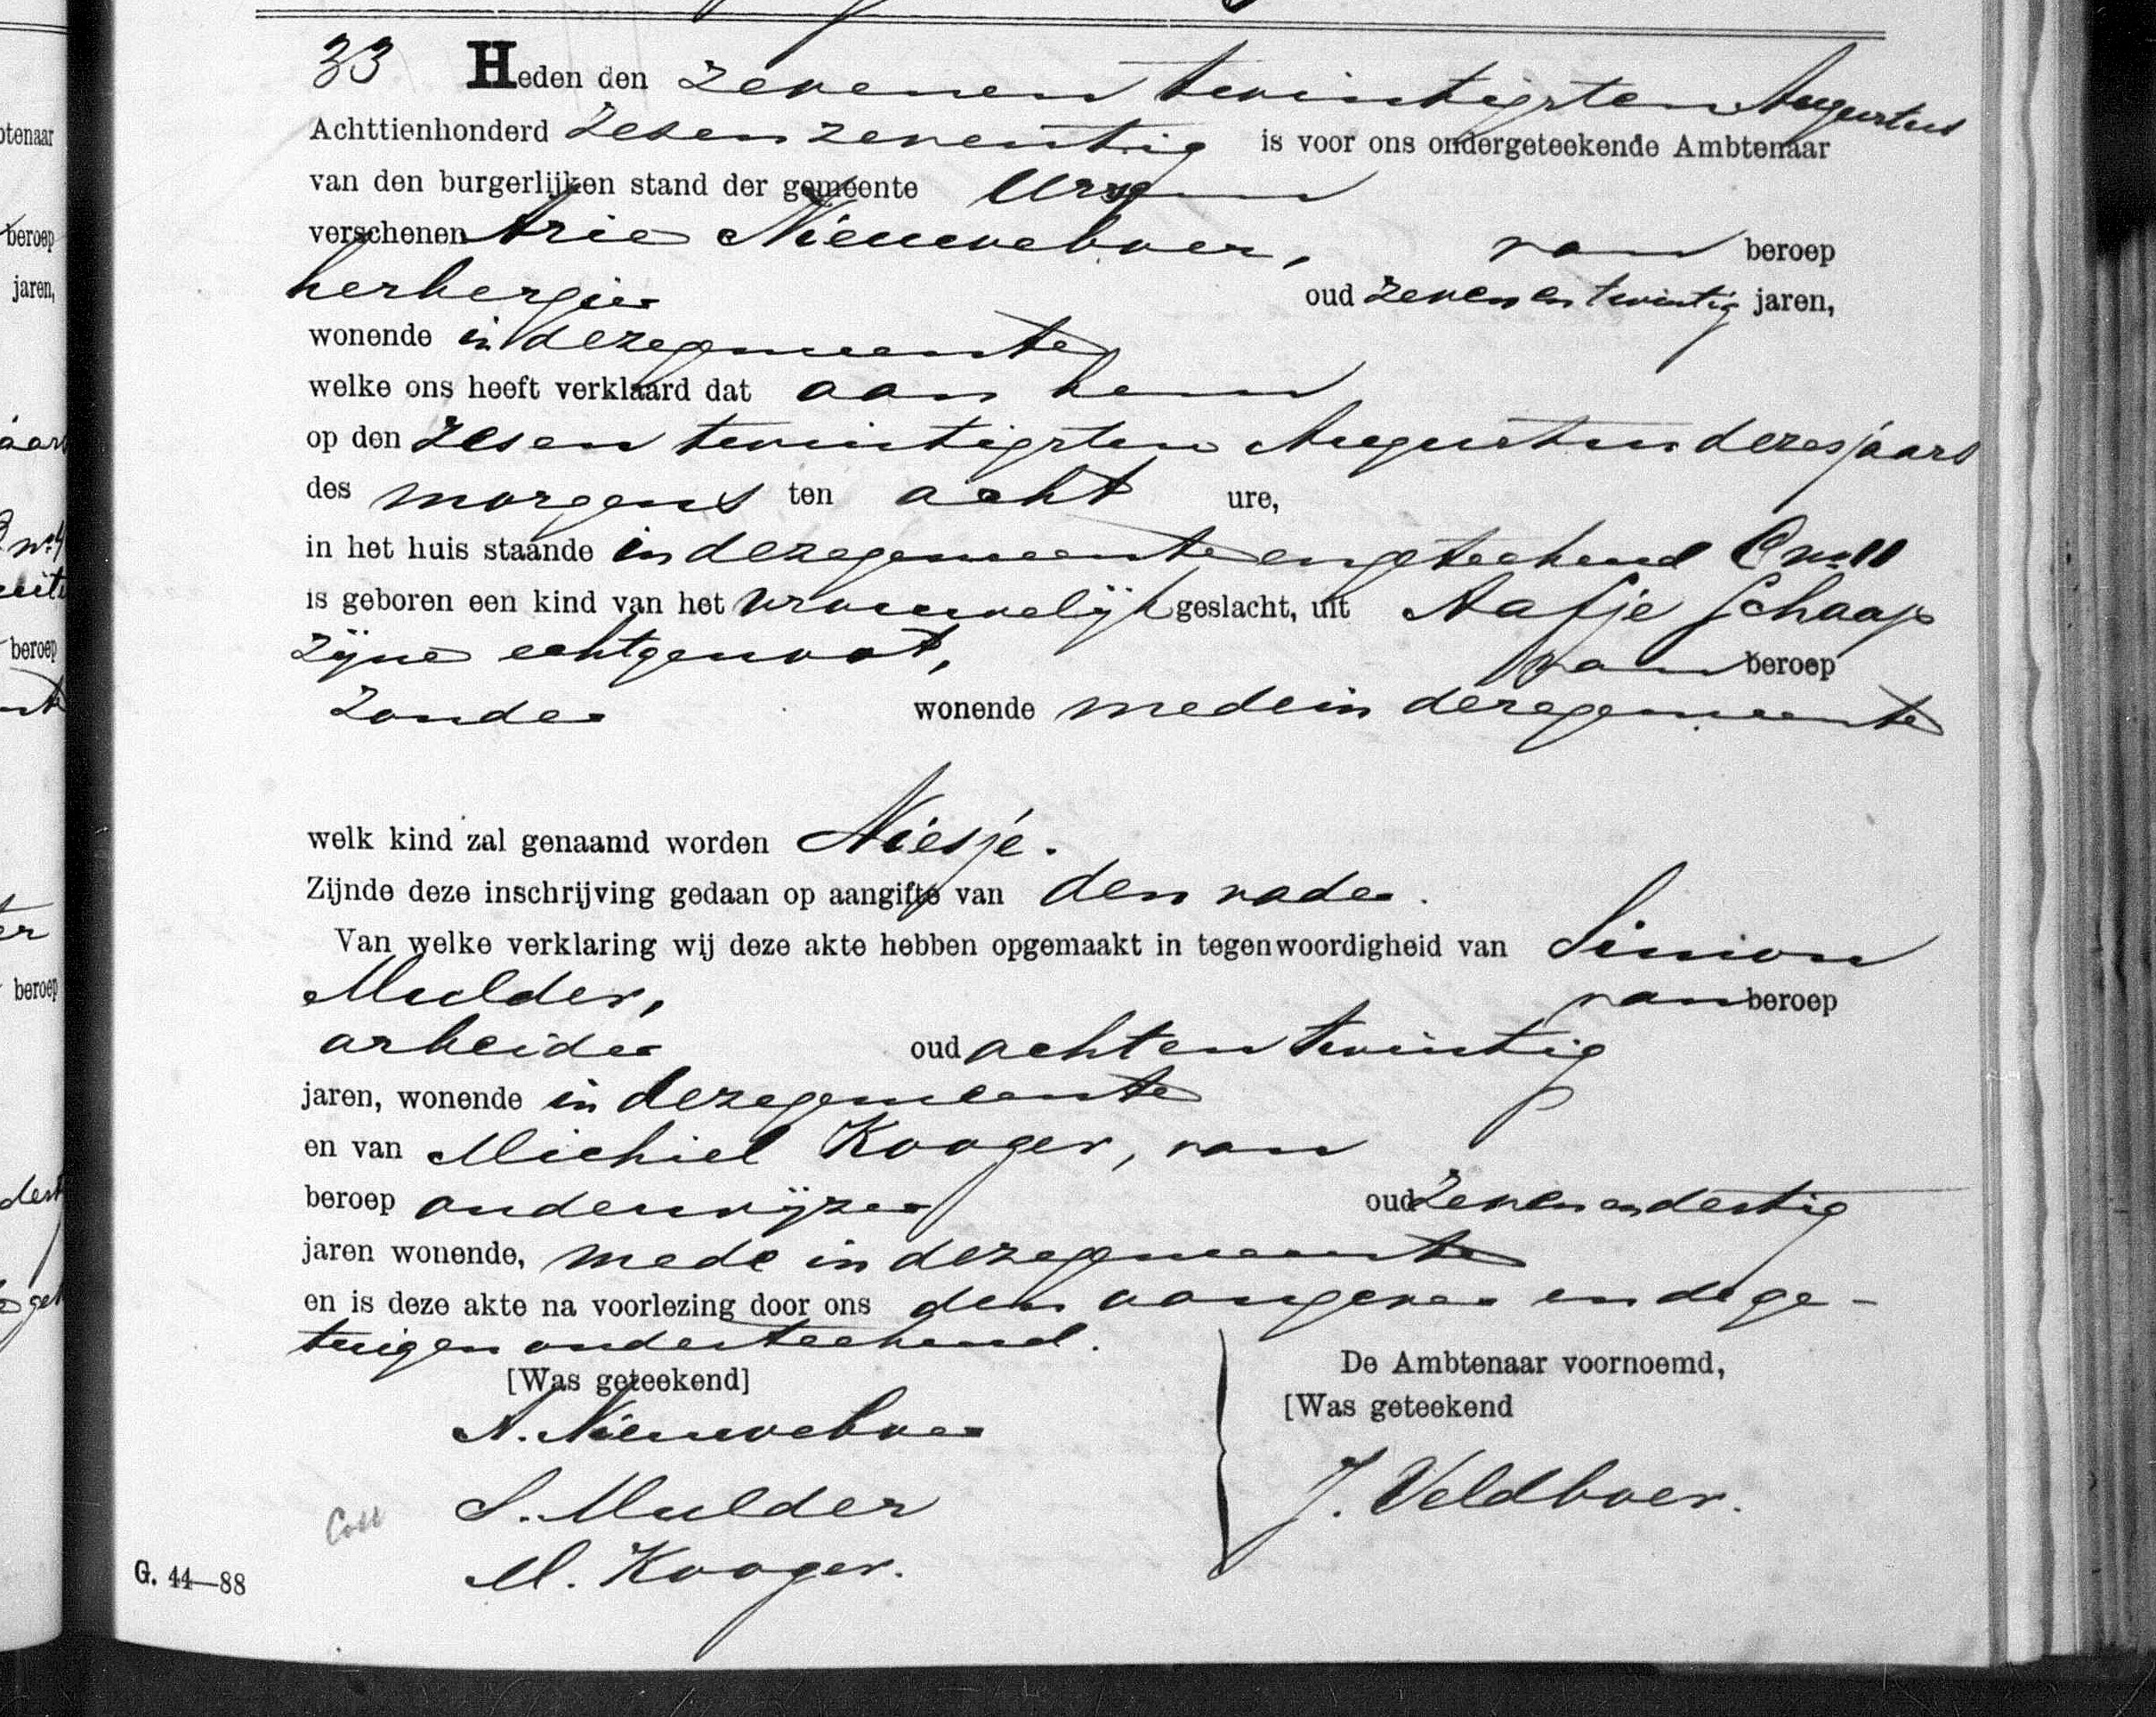 33 Heden den zevenen twintigsten Augustus
Achttienhonderd zesenzeventig is voor ons ondergeteekende Ambtenaar
van den burgerlijken stand der gemeente Ursem
verschenen Arie Nieuweboer, van beroep
herbergier oud zevenentwintig jaren,
wonende in dezegemeente
welke ons heeft verklaard dat aan hem
op den zesen twintigsten Augustus dezesjaars
des morgens ten acht ure,
in het huis staande in dezegemeente engeteekend C no 11
is geboren een kind van het vrouwelijk geslacht, uit Aafje Schaap
zijne echtgenoot, van beroep
zonder wonende medein dezegemeente
welk kind zal genaamd worden Niesje.
Zijnde deze inschrijving gedaan op aangifte van den vader.
Van welke verklaring wij deze akte hebben opgemaakt in tegenwoordigheid van Simon
Mulder, van beroep
arbeider oud achtentwintig
jaren, wonende in dezegemeente
en van Michiel Kooger, van
beroep onderwijzer oud zevenendertig
jaren wonende, mede in dezegemeente
en is deze akte na voorlezing door ons den aangever en de ge-
tuigen onderteekend.
[Was geteekend]
De Ambtenaar voornoemd,
[Was geteekend
A. Nieuweboer
S. Mulder
J. Veldboer.
M. Kooger.
Coll
G. 44—88